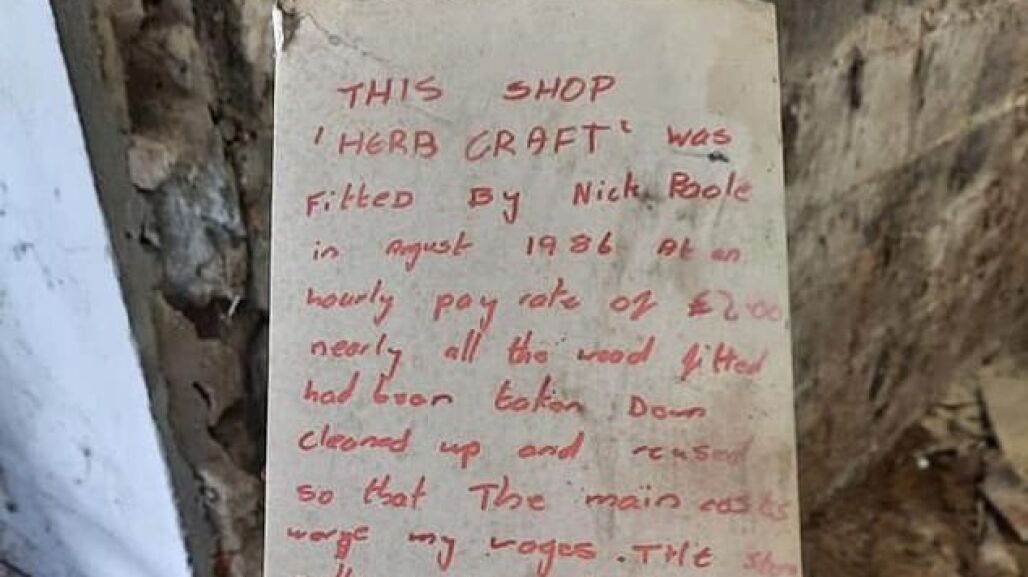 THIS SHOP
'HERB CRAFT' was
Fitted By Nick Poole
in August 1986 At an
hourly pay rate of £2.00
nearly all the wood fitted
had been taken Down
cleaned up and reused
so that The main costs
my wages. THE